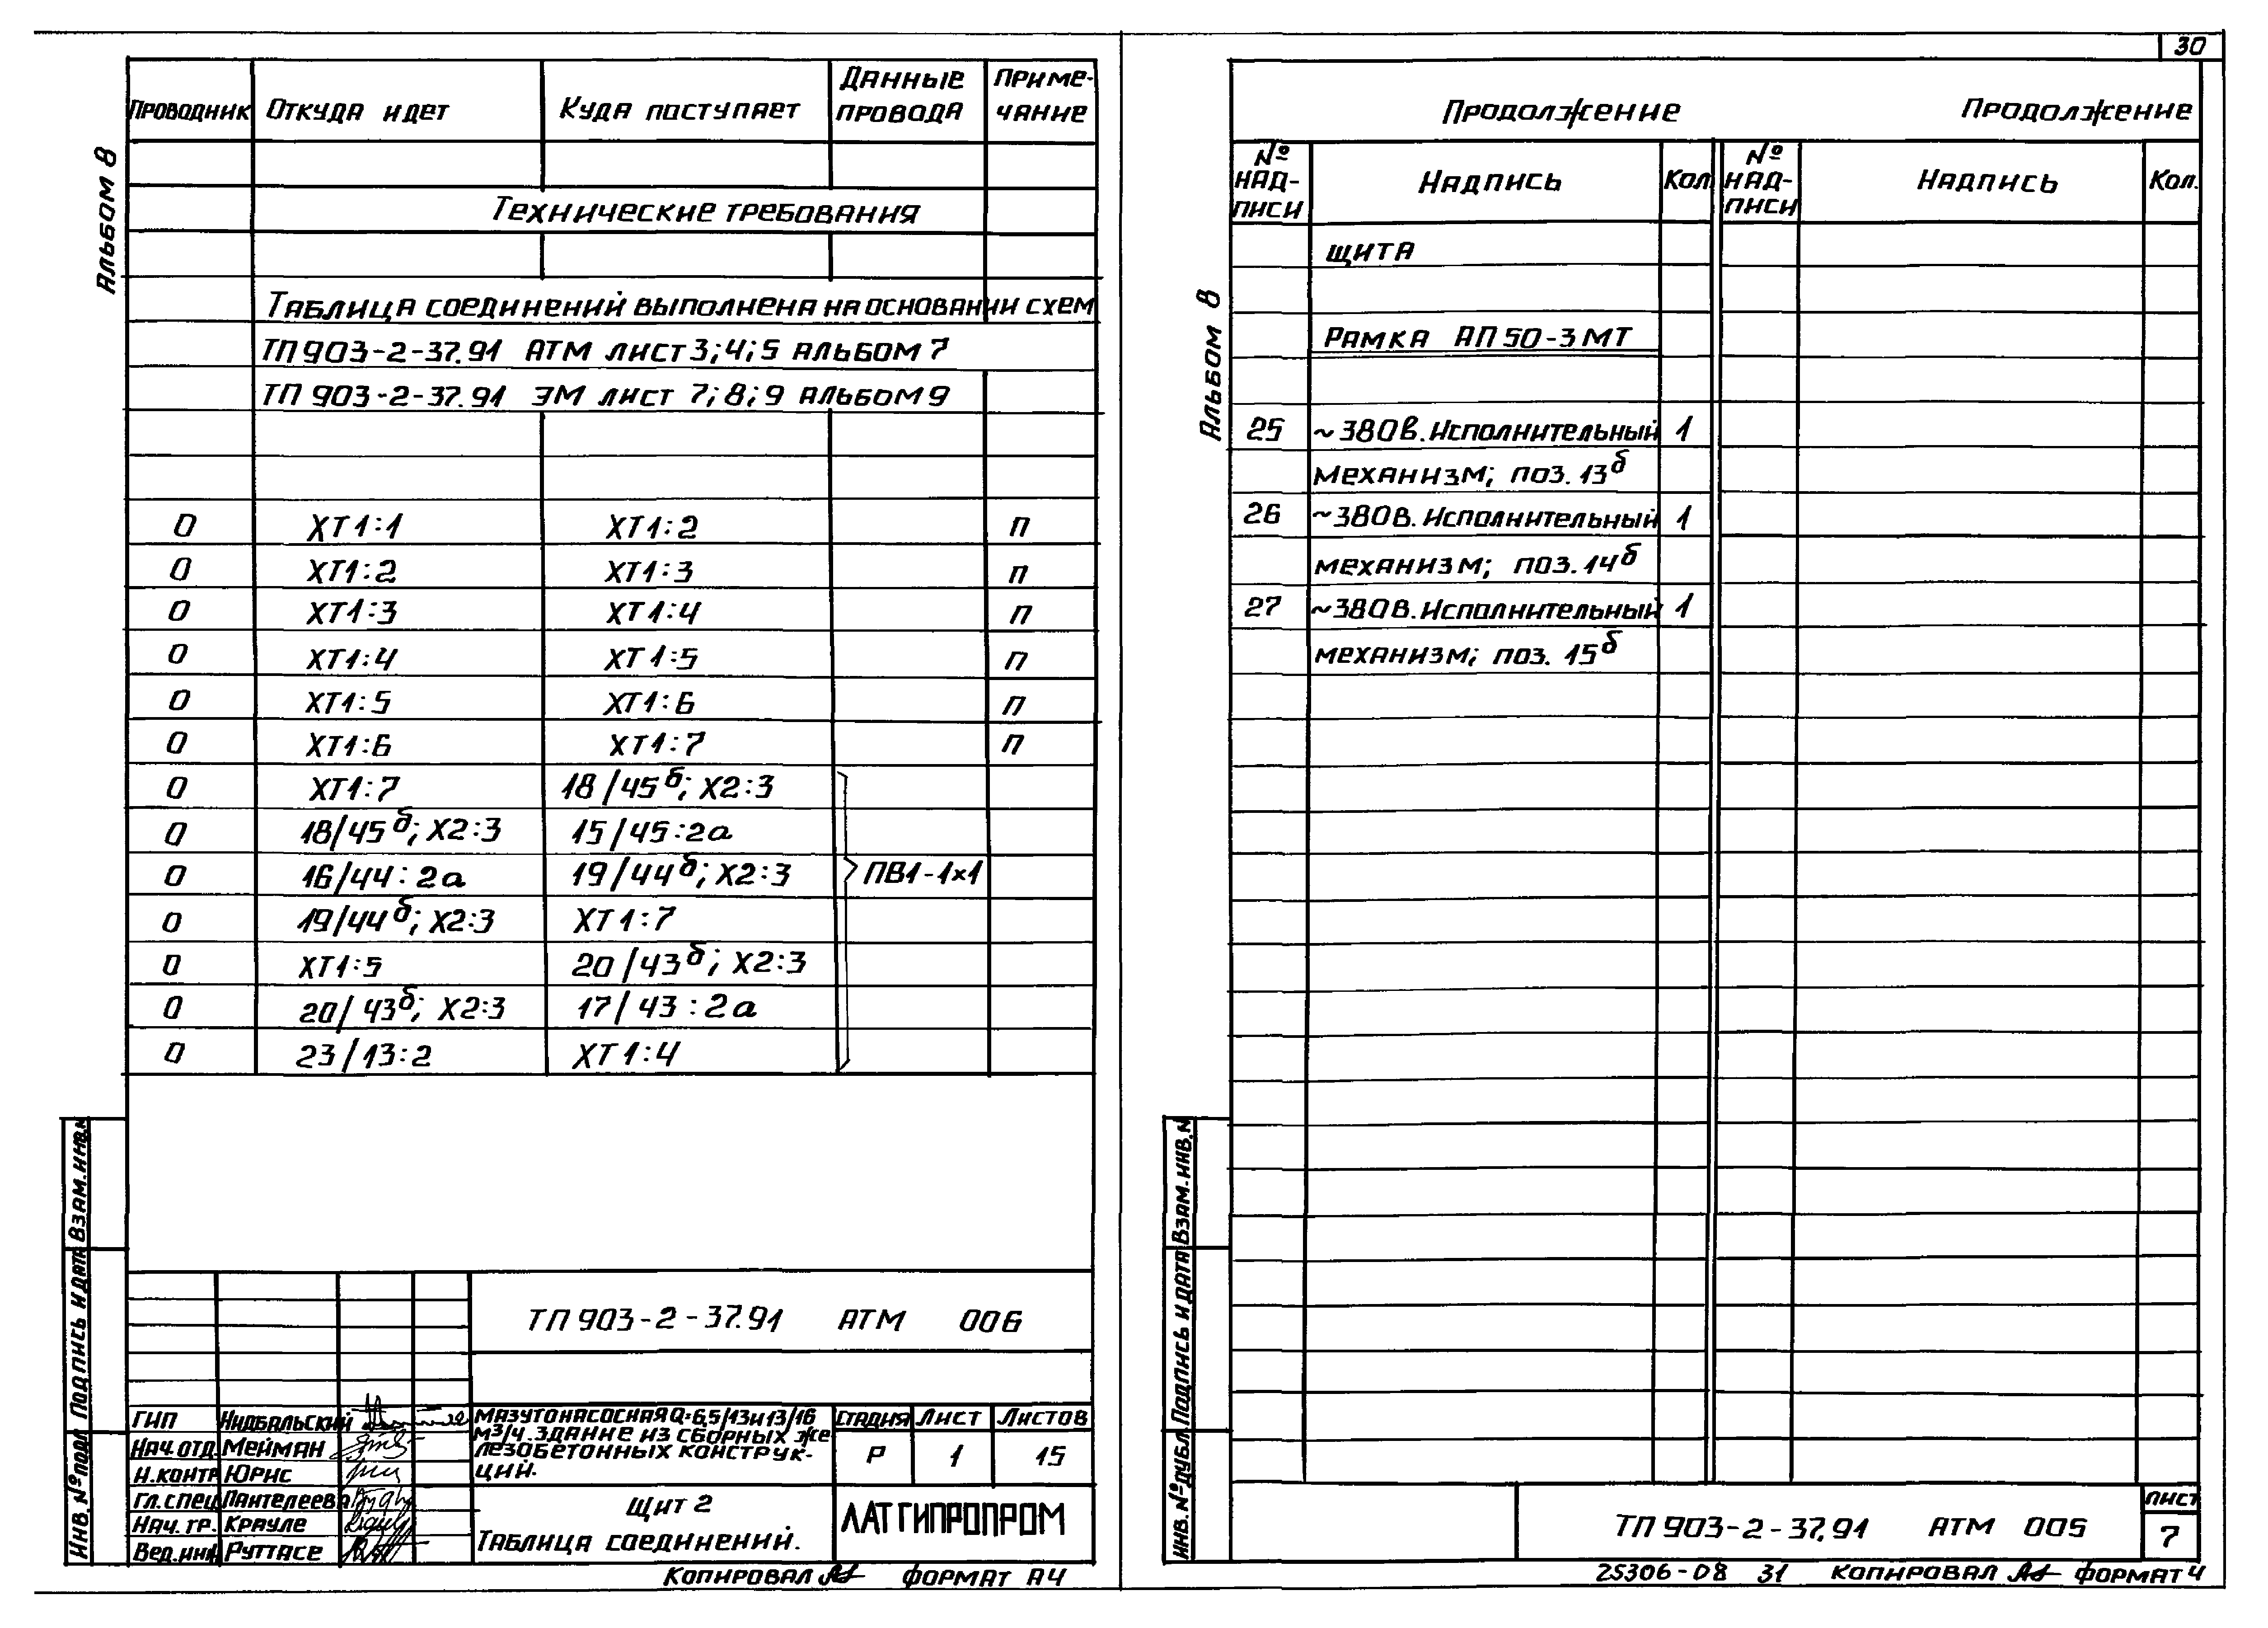 Альбом 8
Проводник Откуда идет Куда поступает Данные провода Приме-чание
Технические требования
Таблица соединений выполнена на основании схем
ТП 903-2-37.91 АТМ лист 3; 4; 5 альбом 7
ТП 903-2-37.91 ЭМ лист 7; 8; 9 альбом 9
0 ХТ1:1 ХТ1:2 п
0 ХТ1:2 ХТ1:3 п
0 ХТ1:3 ХТ1:4 п
0 ХТ1:4 ХТ1:5 п
0 ХТ1:5 ХТ1:6 п
0 ХТ1:6 ХТ1:7 п
0 ХТ1:7 18/45б; Х2:3
0 18/45б; Х2:3 15/45:2а
0 16/44:2а 19/44б; Х2:3 ПВ1-1×1
0 19/44б; Х2:3 ХТ1:7
0 ХТ1:5 20/43б; Х2:3
0 20/43б; Х2:3 17/43:2а
0 23/13:2 ХТ1:4
Инв. № подл Подпись и дата Взам. инв. №
ТП 903-2-37.91 АТМ 006
ГИП Нидбальский
Нач. отд. Мейман
Н. контр Юрис
Гл. спец Пантелеева
Нач. гр. Крауле
Вед. инж Руттасе
Мазутонасосная Q=6,5/13 и 13/16
м³/ч. Здание из сборных же-
лезобетонных конструк-
ций.
Стадия Лист Листов
Р 1 15
Щит 2
Таблица соединений.
ЛАТГИПРОПРОМ
Копировал формат А4
30
Альбом 8
Продолжение Продолжение
№ над-писи Надпись Кол № над-писи Надпись Кол.
щита
Рамка АП50-3МТ
25 ~380В. Исполнительный 1
механизм; поз. 13б
26 ~380В. Исполнительный 1
механизм; поз. 14б
27 ~380В. Исполнительный 1
механизм; поз. 15б
Инв. № дубл. Подпись и дата Взам. инв. №
ТП 903-2-37.91 АТМ 005
лист
7
25306-08 31 Копировал формат 4